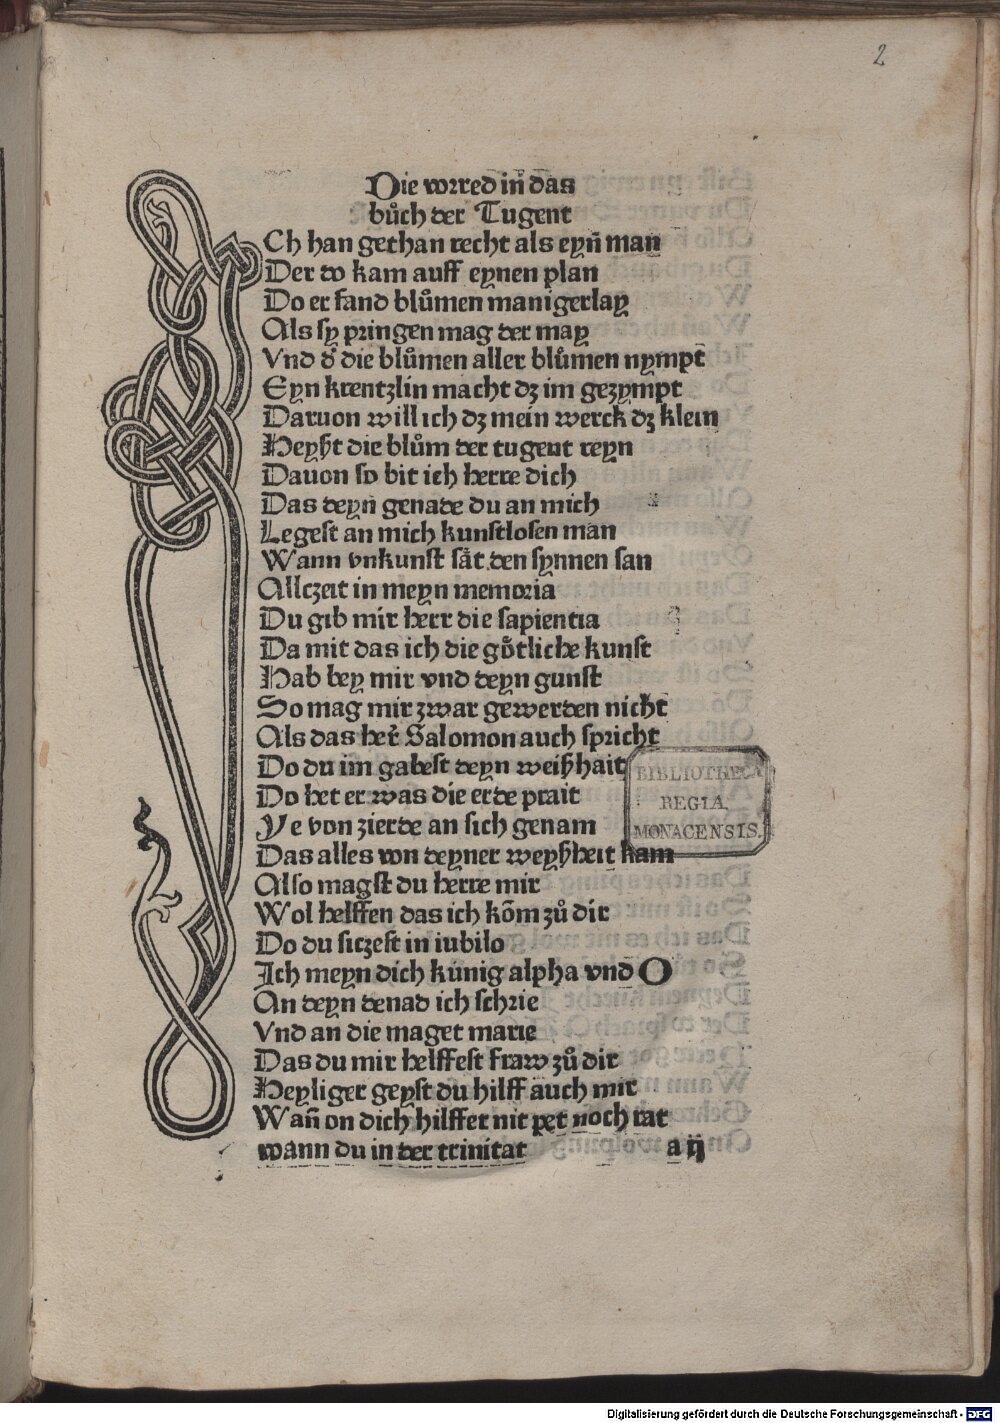 2
Die vorred in̄ das
bůch der Tugent
Ch han gethan recht als eyn̄ man
Der do kam auff eynen plan
Do er fand blůmen manigerlay
Als sy pringen mag der may
Vnd d' die blůmen aller blůmen nympt
Eyn krentzlin macht dz im gezympt
Daruon will ich dz mein werck dz klein
Heyßt die blům der tugent reyn
Dauon so bit ich herre dich
Das deyn genade du an mich
Legest an mich kunstlosen man
Wann vnkunst sǎt den synnen san
Allczeit in meyn memoria
Du gib mir herr die sapientia
Da mit das ich die gǒtliche kunst
Hab bey mir vnd deyn gunst
So mag mir zwar gewerden nicht
Als das her̄ Salomon auch spricht
Do du im gabest deyn weißhait
Do het er was die erde prait
Ye von zierde an sich genam
Das alles von deyner weyßheit kam
Also magst du herre mir
Wol helffen das ich kōm zů dir
Do du siczest in iubilo
Ich meyn dich kúnig alpha vnd O
An deyn denad ich schrie
Vnd an die maget marie
Das du mir helffest fraw zů dir
Heyliger geyst du hilff auch mir
Wan̄ on dich hilffet nit pet noch rat
wann du in der trinitat
a ij
BIBLIOTHECA
REGIA
MONACENSIS.
Digitalisierung gefördert durch die Deutsche Forschungsgemeinschaft - DFG